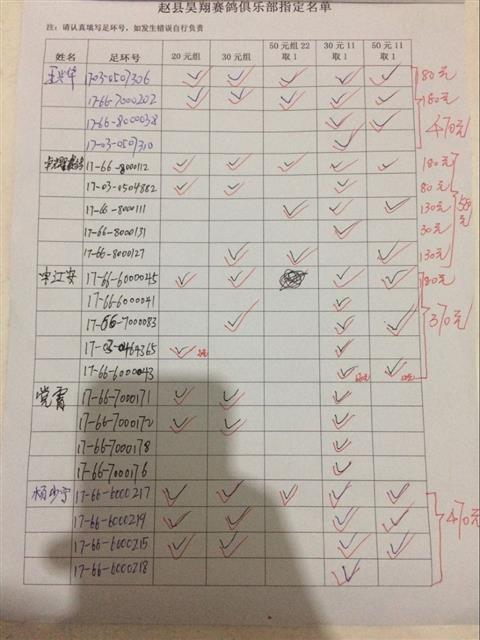 赵县昊翔赛鸽俱乐部指定名单
注：请认真填写足环号，如发生错误自行负责
姓名 足环号 20元组 30元组 50元组22取1 30元11取1 50元11取1
17-03-0507306 180元
17-66-7000202 180元
17-66-8000038 470元
17-03-0507310
17-66-8000112 180元
17-03-0504882 80元
17-66-8000111 130元
17-66-8000131 30元
17-66-8000127 130元
申江安 17-66-6000045 180元
17-66-6000041
17-66-7000083 370元
17-03-0464365
17-66-6000043
党霄 17-66-7000171
17-66-7000172
17-66-7000178
17-66-7000176
杨少宁 17-66-6000217
17-66-6000219 470元
17-66-6000215
17-66-6000218